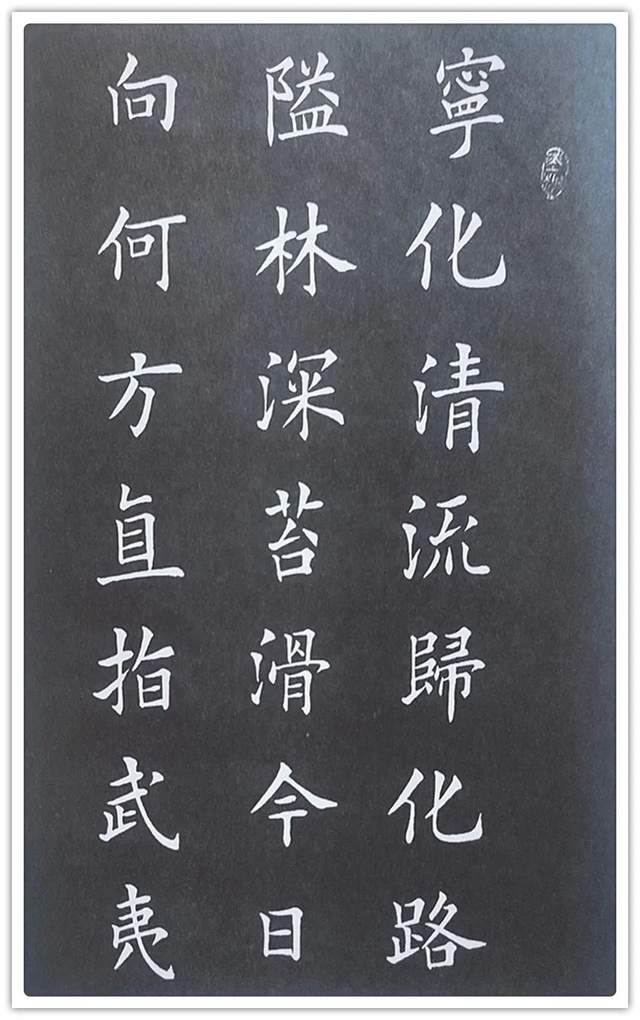 寧化清流歸化路
隘林深苔滑今日
向何方直指武夷